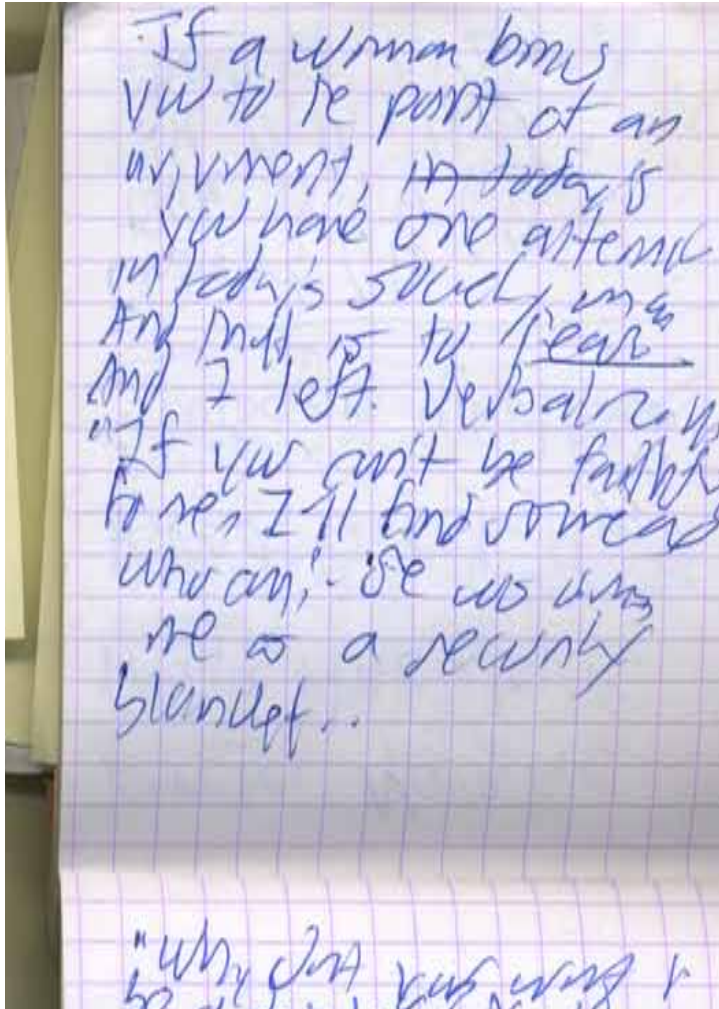 If a woman brings
you to the point of an
argument, in today's
you have one alternat
in today's society
And that is to
And I left. Verbalizing
"If you can't be faithful
to me, I'll find someone
who can". She was using
me as a security
blanket...
"Why don't you want